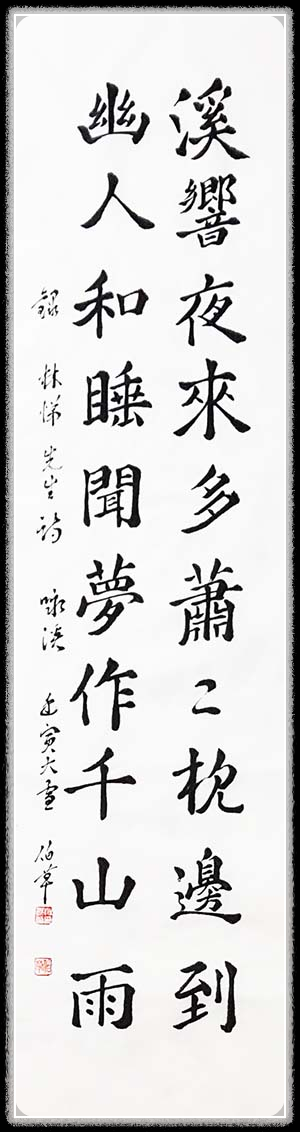 溪響夜來多蕭〻枕邊到
幽人和睡聞夢作千山雨
錄 林悌先生詩 咏溪 壬寅大雪 佰華